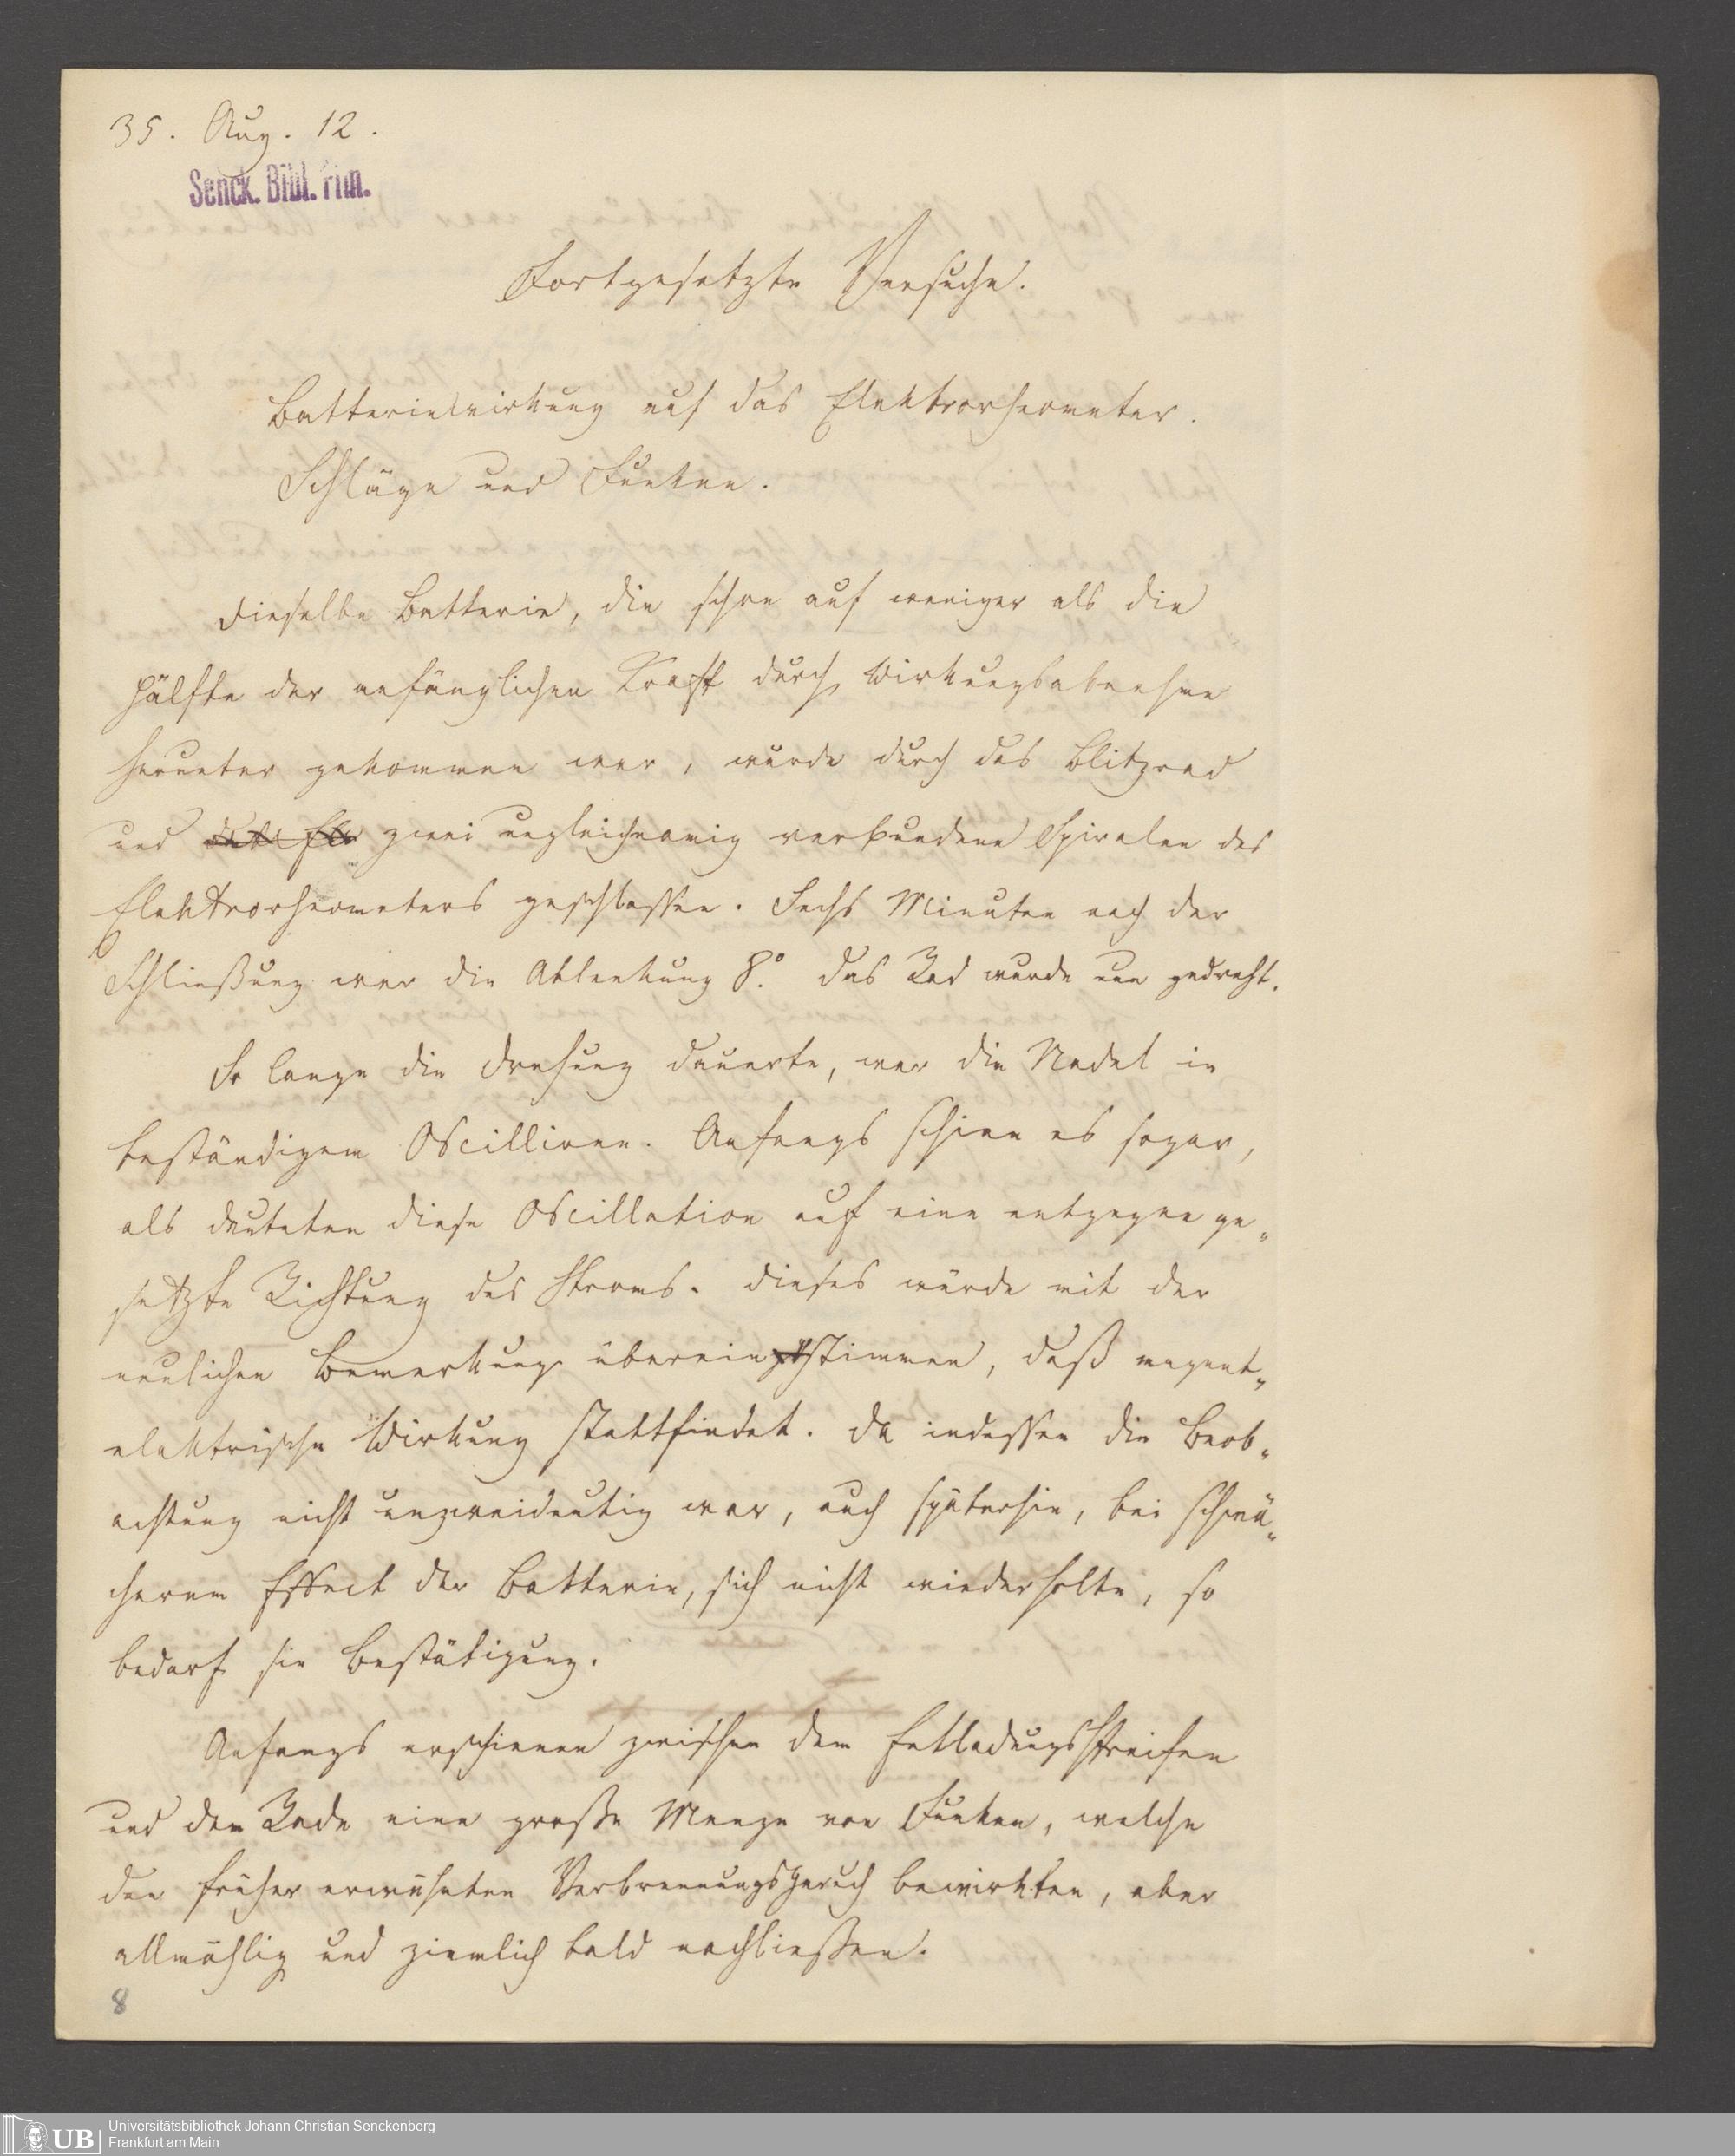 35. Aug. 12.
Senck. Bibl. Ffm.
Fortgesetzte Versuche.
Batteriewirkung auf das Elektrorheometer.
Schläge und Funken.
Dieselbe Batterie, die schon auf weniger als die
Hälfte der anfänglichen Kraft durch Wirkungsabnahme
herunter gekommen war, wurde durch das Blitzrad
und zwei ungleichnamig verbundene Spiralen des
Elektrorheometers geschlossen. Sechs Minuten nach der
Schließung war die Ablenkung 8°. Das Rad wurde nun gedreht.
So lange die Drehung dauerte, war die Nadel in
beständigem Oscilliren. Anfangs schien es sogar,
als deuteten diese Oscillation auf eine entgegen ge„
setzte Richtung des Stroms. Dieses würde mit der
neulichen Bemerkung übereinstimmen, daß magnet„
elektrische Wirkung stattfindet. Da indessen die Beob„
achtung nicht unzweideutig war, auch späterhin, bei schwä„
cherem Effect der Batterie, sich nicht wiederholte, so
bedarf sie Bestätigung.
Anfangs erschienen zwischen dem Entladungsstreifen
und dem Rade eine große Menge von Funken, welche
den früher erwähnten Verbrennungsgeruch bewirkten, aber
allmählig und ziemlich bald nachließen.
8
UB
Universitätsbibliothek Johann Christian Senckenberg
Frankfurt am Main